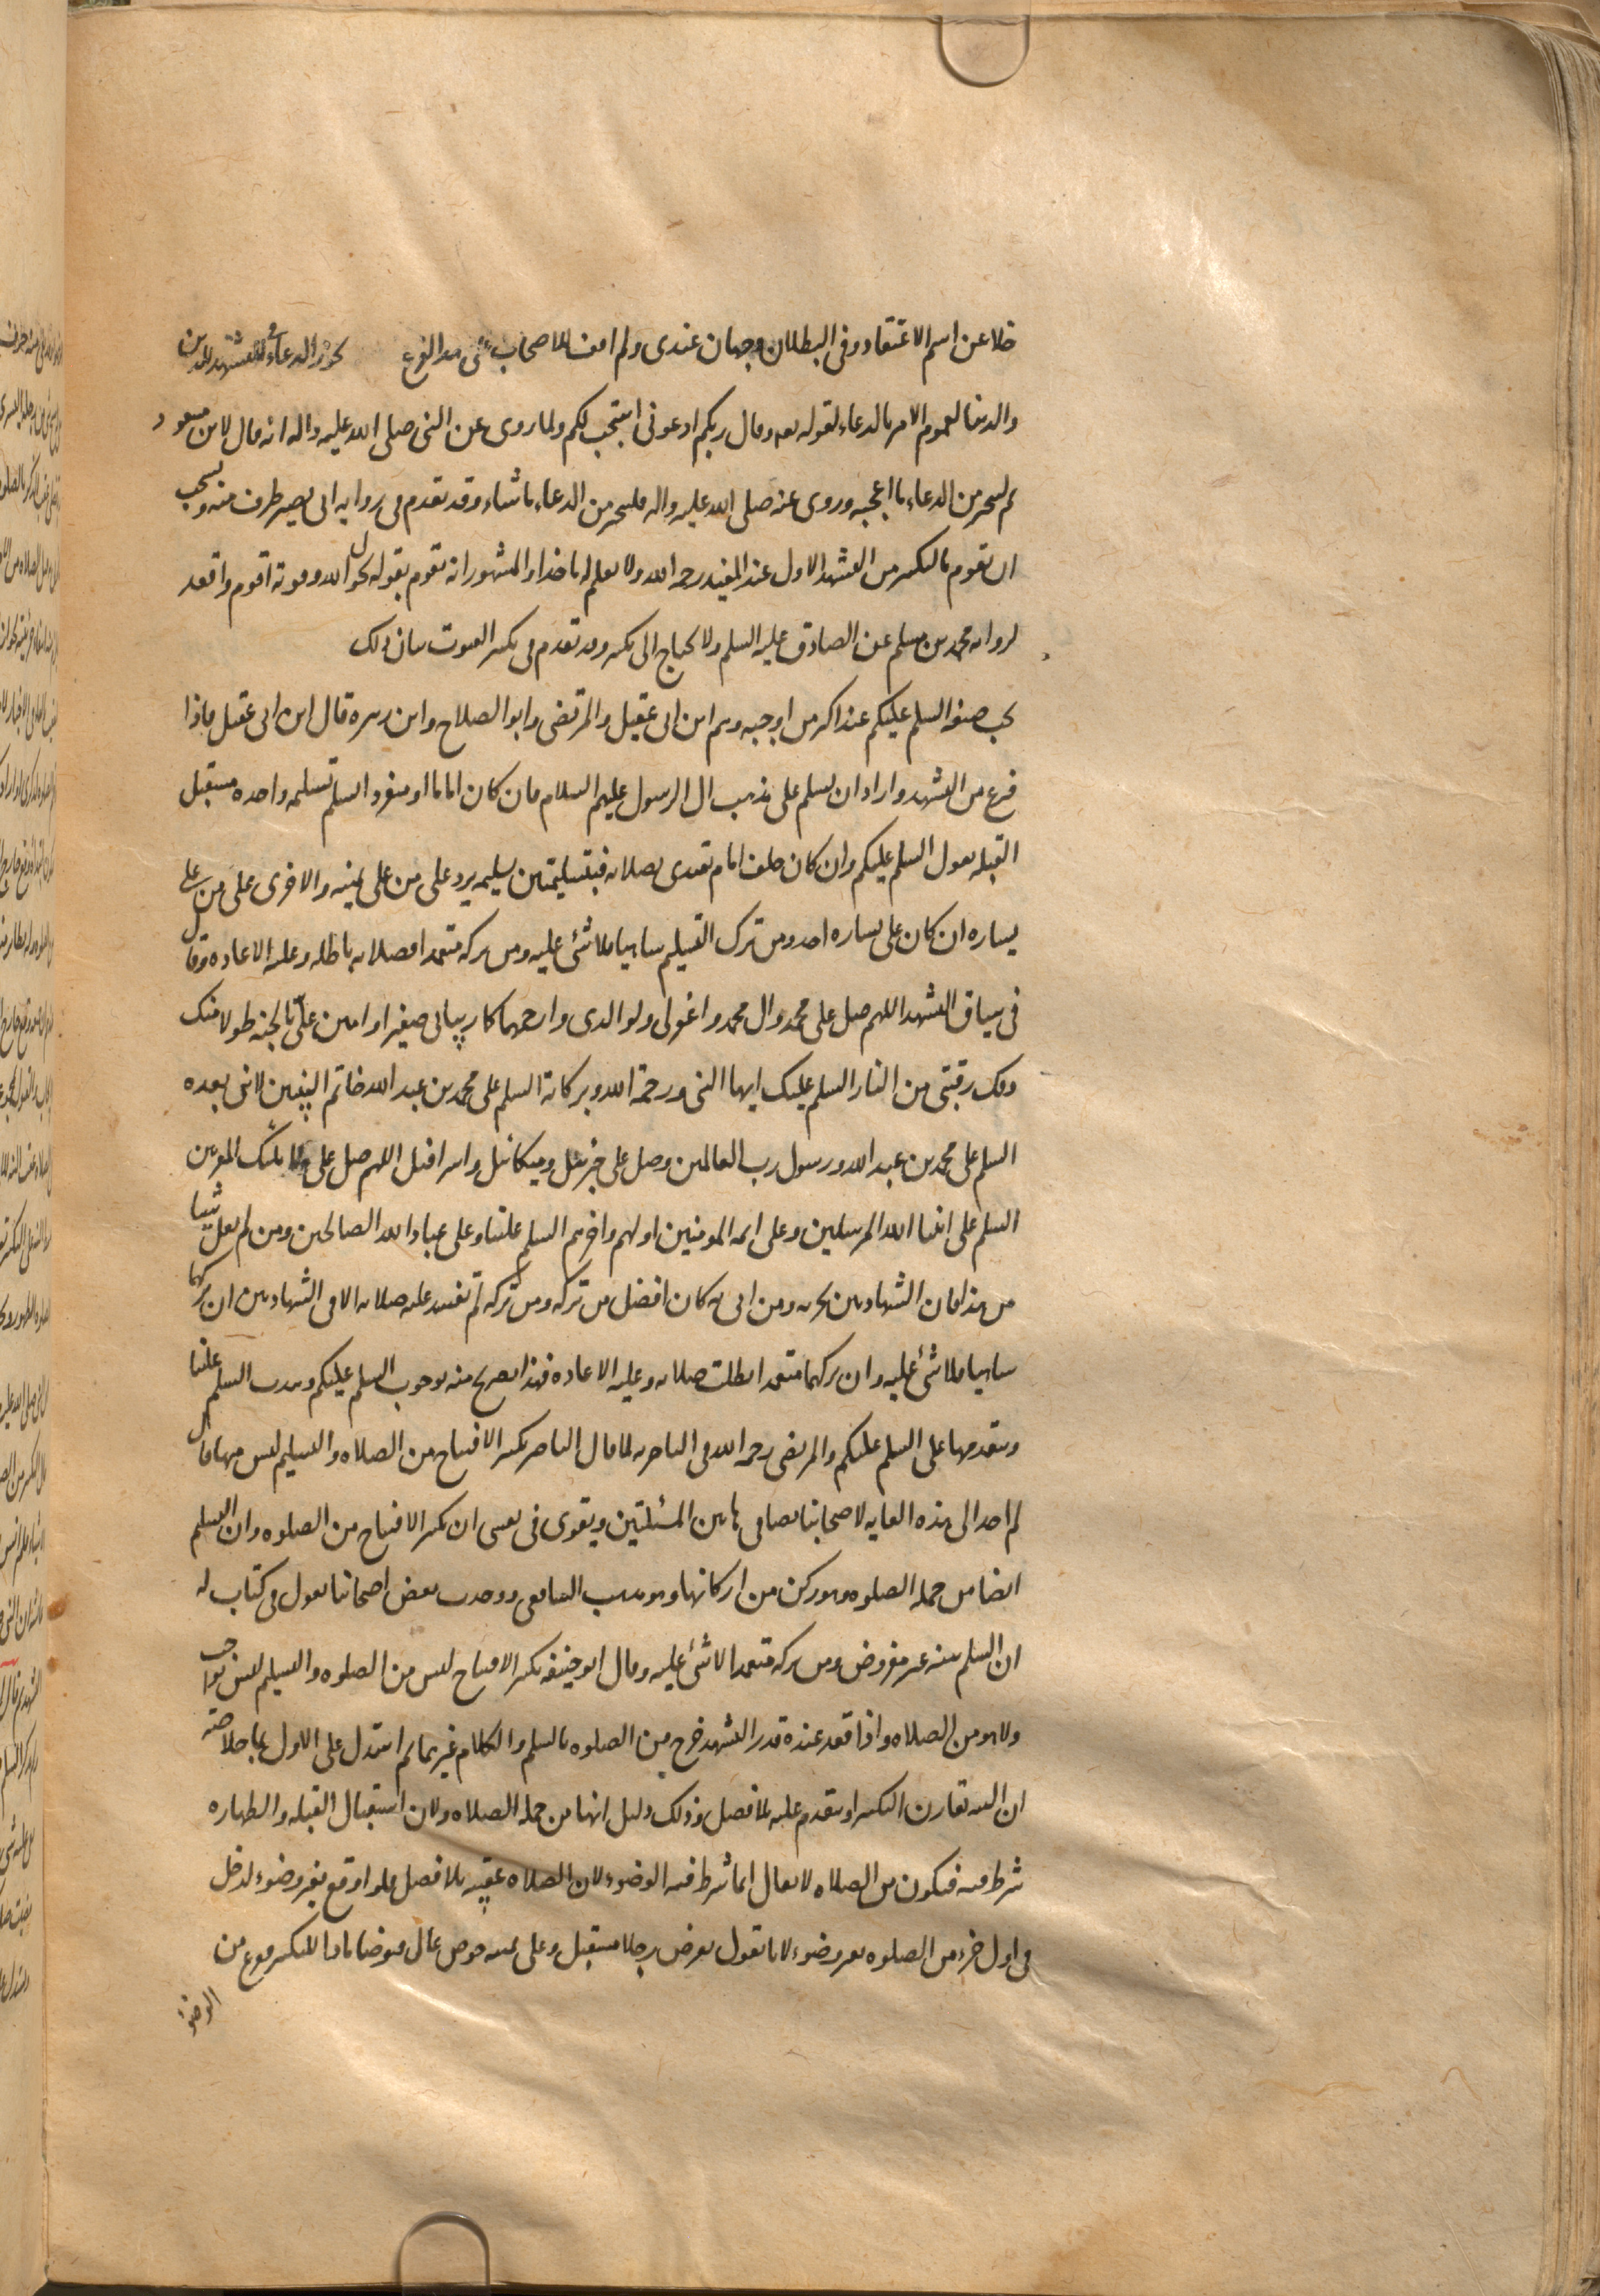 خلا عن اسم الاعتقاد وفى البطلان وجهان عندى ولم اقف للاصحاب على هذا الفرع يجوز الدعاء فى التشهد للدين
والدنيا لعموم الامر بالدعاء لقوله تعه وقال ربكم ادعونى استجب لكم ولما روى عن النبى صلى الله عليه واله انه قال لابن مسعود
ثم ليتخير من الدعاء ما اعجبه وروى عنه صلى الله عليه واله فليتخير من الدعاء ما شاء وقد تقدم فى روايه ابى بصير طرف منه ويستحب
ان يقوم بالتكبير من التشهد الاول عند المفيد رحمه الله ولا يعلم له ماخذا والمشهور انه يقوم بقوله بحول الله وقوته اقوم واقعد
لروايه محمد بن مسلم عن الصادق عليه السلم ولا يحتاج الى تكبير وقد تقدم فى تكبير القنوت بيان ذلك
يجب صيغه السلم عليكم عند اكثر من اوجبه وهم ابن ابى عقيل والمرتضى وابو الصلاح وابن زهره قال ابن ابى عقيل فاذا
فرغ من التشهد واراد ان يسلم على مذهب ال الرسول عليهم السلام فان كان اماما او منفردا سلم تسليمه واحده مستقبل
القبله يقول السلم عليكم وان كان خلف امام يقتدى بصلاته فبتسليمتين تسليمه يرد على من على يمينه والاخرى على من على
يساره ان كان على يساره احد ومن ترك التسليم ساهيا فلا شئ عليه ومن تركه متعمدا فصلاته باطله وعليه الاعاده وقال
فى سياق التشهد اللهم صل على محمد وال محمد واغفر لى ولوالدى وارحمهما كما ربيانى صغيرا وامنن على بالجنه طولا منك
وفك رقبتى من النار السلم عليك ايها النبى ورحمة الله وبركاته السلم على محمد بن عبد الله خاتم النبيين لا نبى بعده
السلم على محمد بن عبد الله ورسول رب العالمين وصل على جبرئيل وميكائيل واسرافيل اللهم صل على ملائكتك المقربين
السلم على انبياء الله المرسلين وعلى ايمه المومنين اولهم واخرهم السلم علينا وعلى عباد الله الصالحين ومن لم يقل شيئا
من هذا فان الشهادتين تجزيه ومن اتى به كان افضل من تركه ومن تركه لم تفسد عليه صلاته الا فى الشهادتين ان تركهما
ساهيا فلا شئ عليه وان تركهما متعمدا بطلت صلاته وعليه الاعاده فهذا تصريح منه بوجوب السلم عليكم وندب السلم علينا
وتقدمها على السلم عليكم والمرتضى رحمه الله فى الناصريه لما قال الناصر تكبير الافتتاح من الصلاه والتسليم ليس منها قال
لم اجد الى هذه الغايه لاصحابنا نصا فى هاتين المسئلتين ويقوى فى نفسى ان تكبير الافتتاح من الصلوه وان التسليم
ايضا من جمله الصلوه وهو ركن من اركانها وهو مذهب الشافعى ووجدت بعض اصحابنا يقول فى كتاب له
ان السلم سنه غير مفروض ومن تركه متعمدا لا شئ عليه وقال ابو حنيفه تكبير الافتتاح ليس من الصلوه والتسليم ليس بواجب
ولا هو من الصلاه واذا قعد عنده قدر التشهد خرج من الصلوه بالسلم والكلام غيرهما ثم استدل على الاول بما خلاصته
ان النيه تقارن التكبير او تتقدم عليه بلا فصل وذلك دليل انها من جمله الصلاه ولان استقبال القبله والطهاره
شرط فيه فيكون من الصلاه لا يقال انما شرط فيه الوضوء لان الصلاه عقيبه بلا فصل فلو اوقع بغير وضوء لدخل
فى اول جزء من الصلوه بغير وضوء لانا نقول نفرض رجلا مستقبل وعلى يمينه حوض عال فتوضا بادا للتكبير فوع من
الوضوء